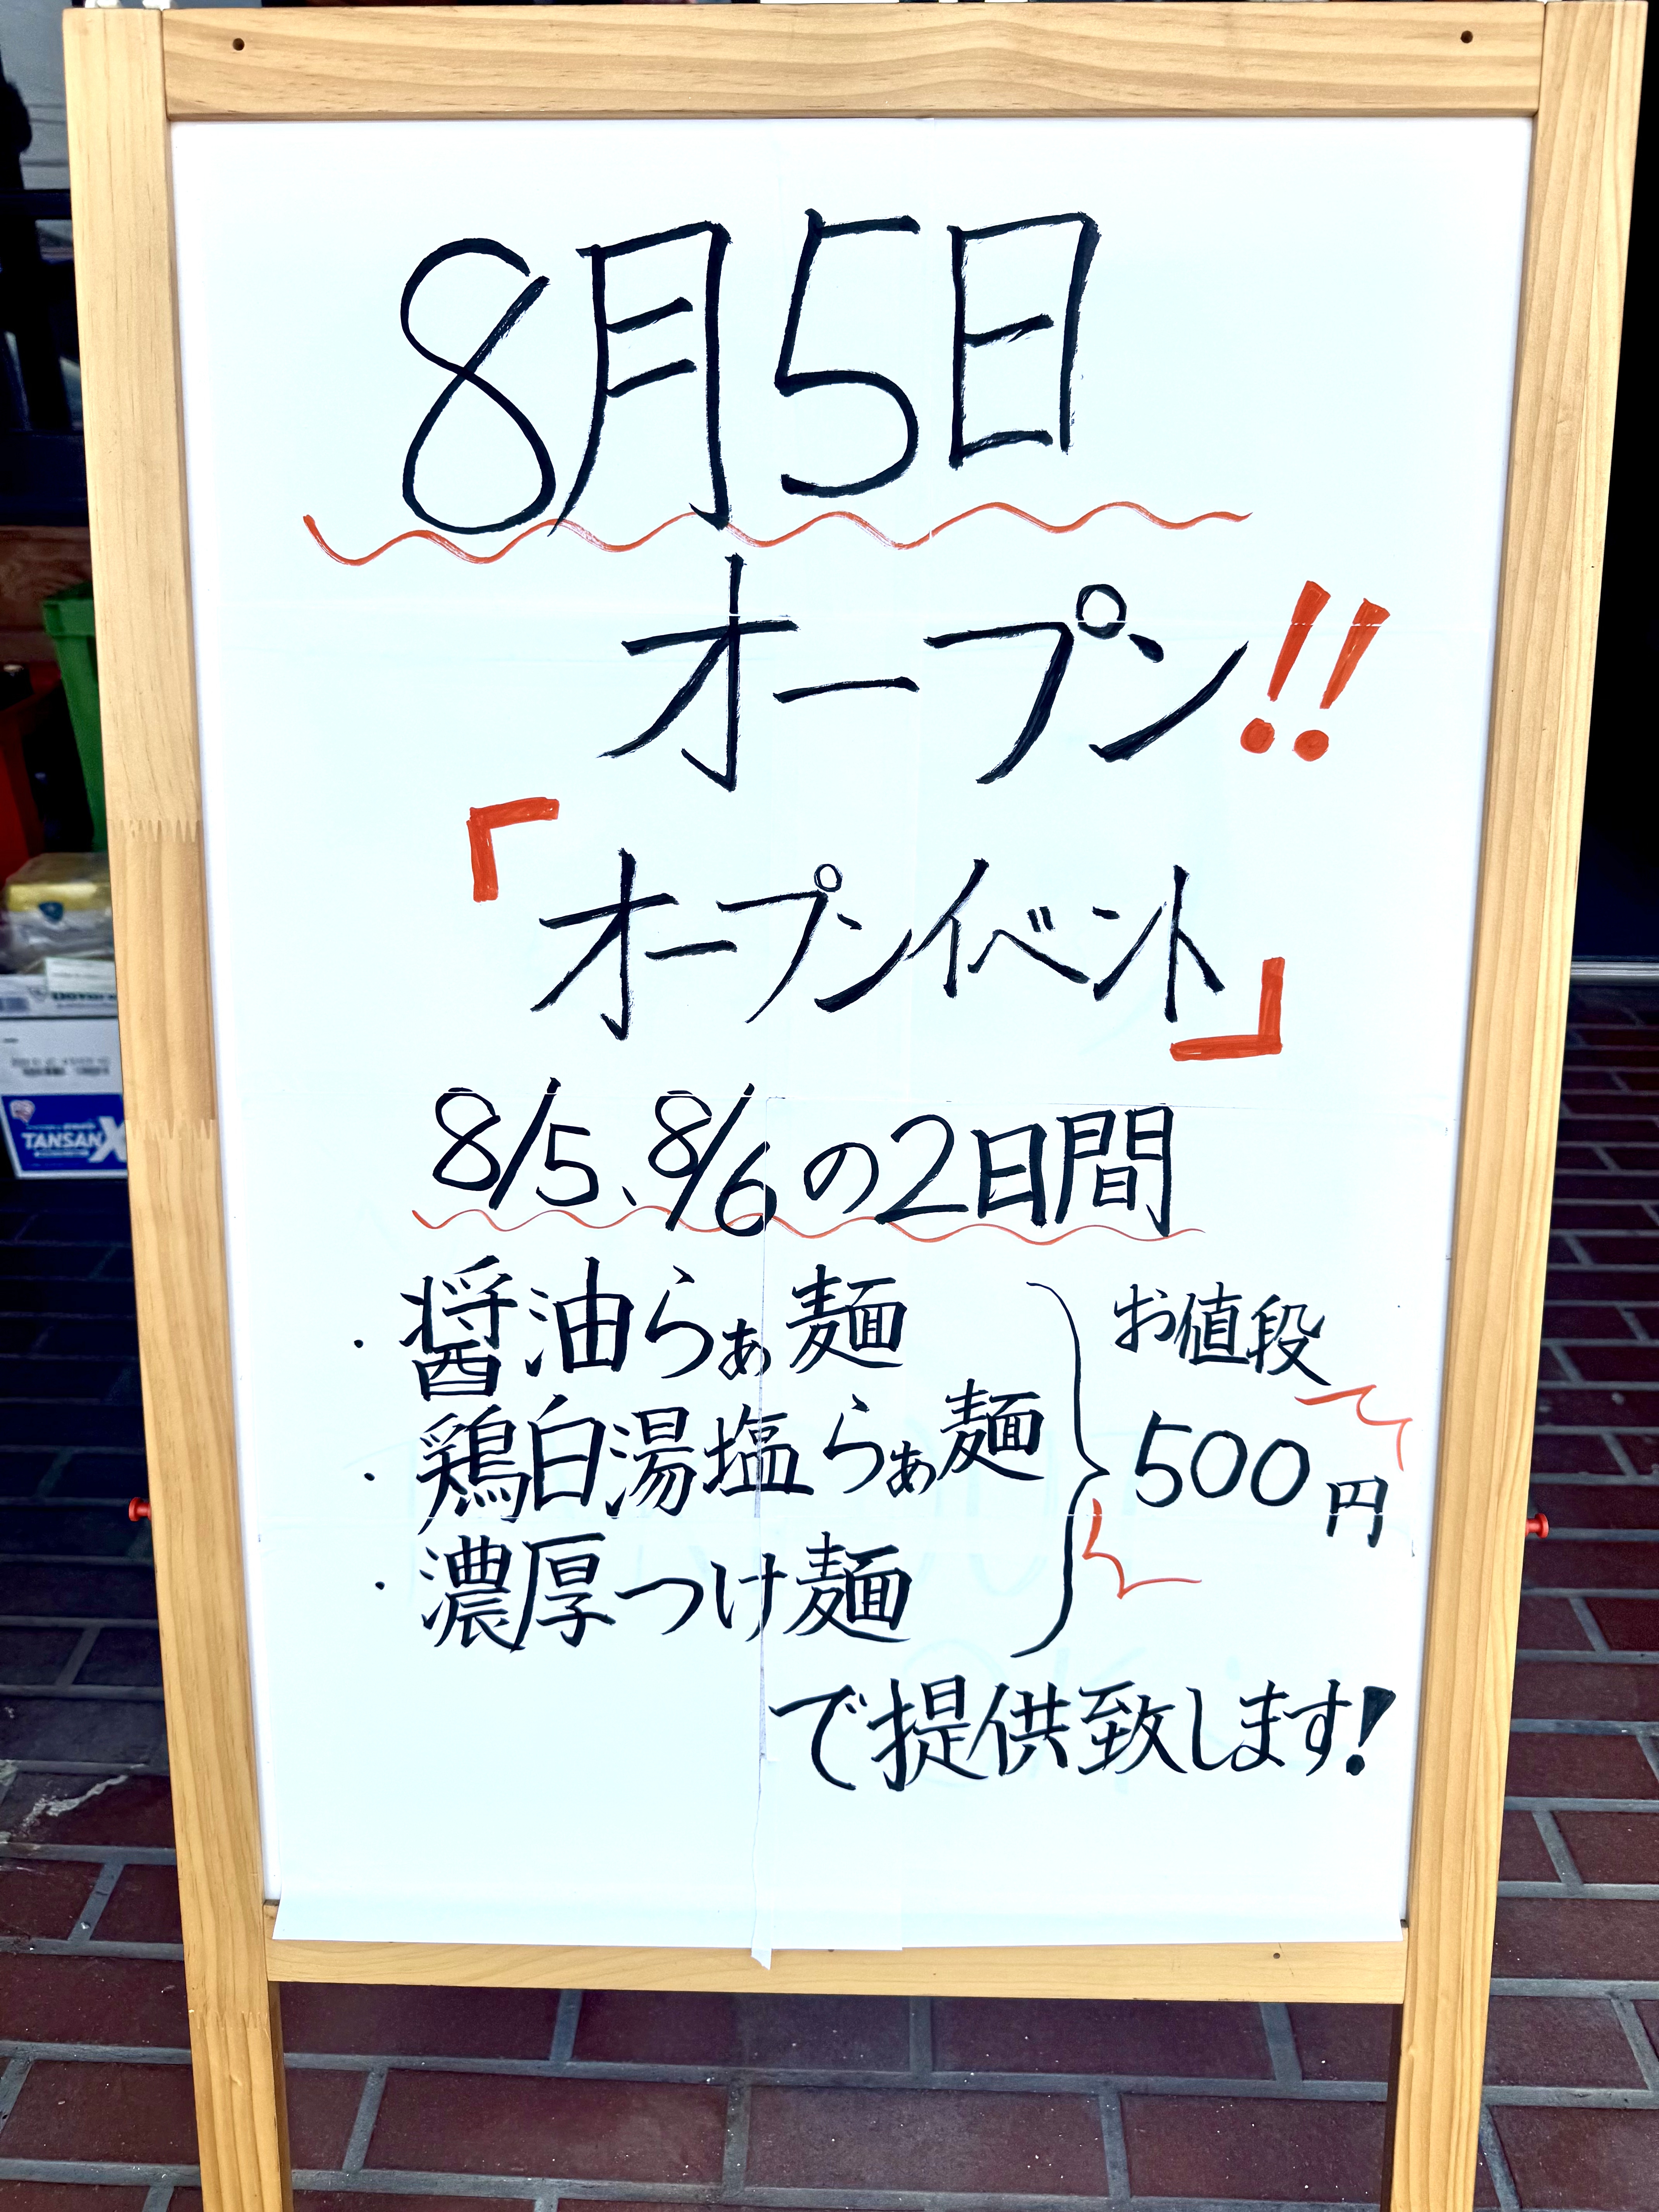 8月5日
オープン!!
「オープンイベント」
8/5、8/6の2日間
・醤油らぁ麺
・鶏白湯塩らぁ麺
・濃厚つけ麺
お値段
500円
で提供致します!
TANSAN X